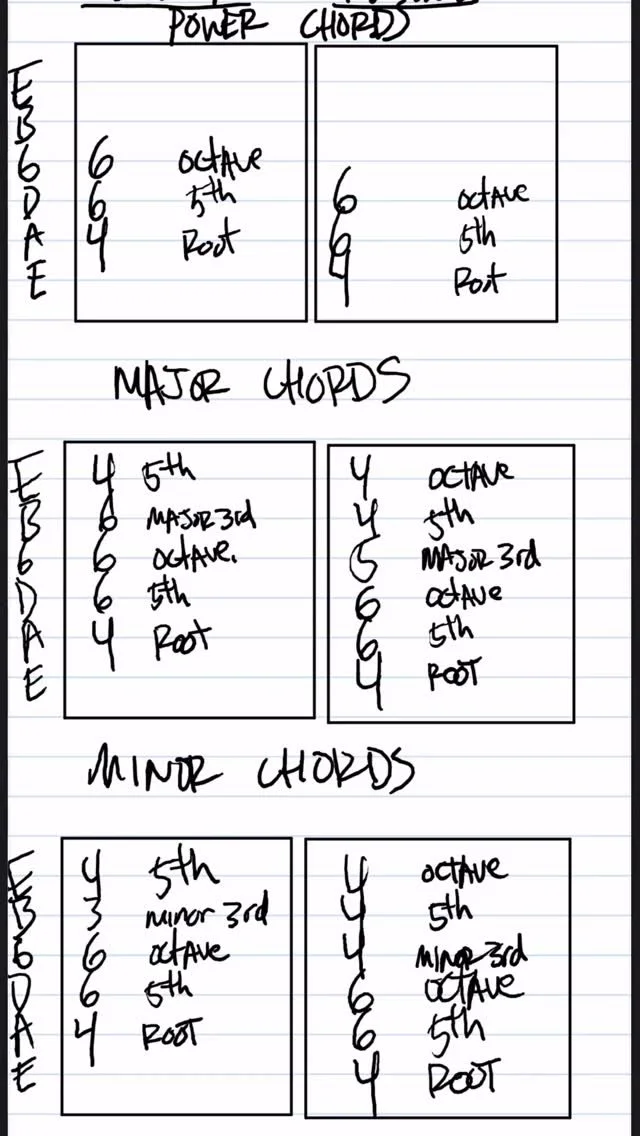 POWER CHORDS
E
B
G 6 OCTAVE
D 6 5th 6 OCTAVE
A 4 Root 6 5th
E 4 Root
MAJOR CHORDS
E 4 5th 4 OCTAVE
B 6 MAJOR 3rd 4 5th
G 6 OCTAVE. 5 MAJOR 3rd
D 6 5th 6 OCTAVE
A 4 ROOT 6 5th
E 4 ROOT
MINOR CHORDS
E 4 5th 4 OCTAVE
B 3 minor 3rd 4 5th
G 6 OCTAVE 4 minor 3rd
D 6 5th 6 OCTAVE
A 4 ROOT 6 5th
E 4 ROOT